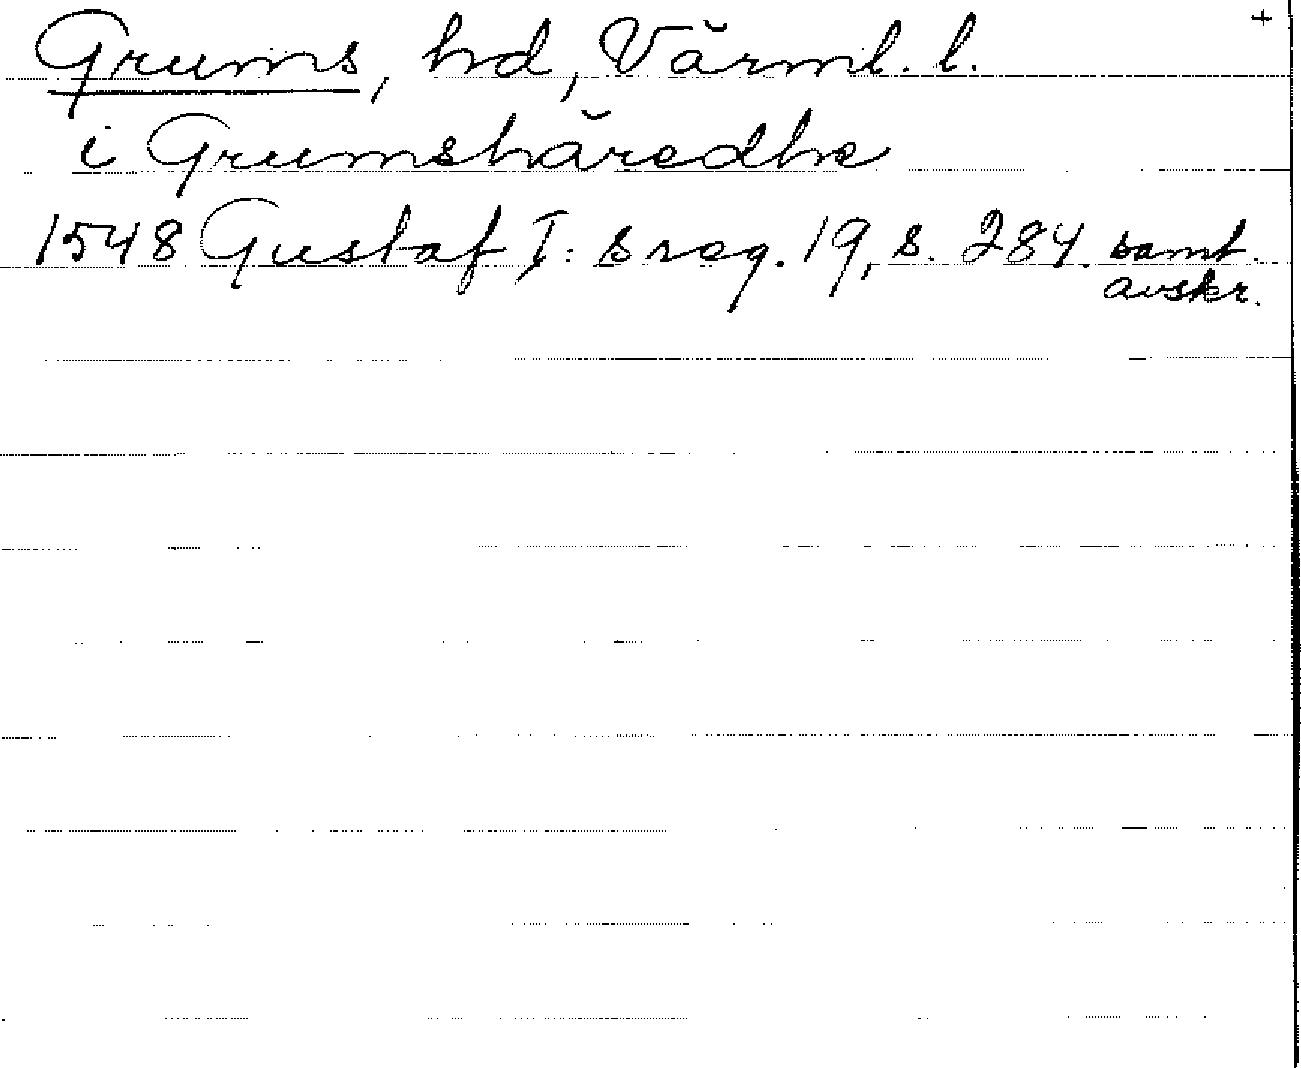 Grums, hd, Värml. l. +
i Grumshäredhe
1548 Gustaf I:s reg. 19, s. 284. samt.
avskr.